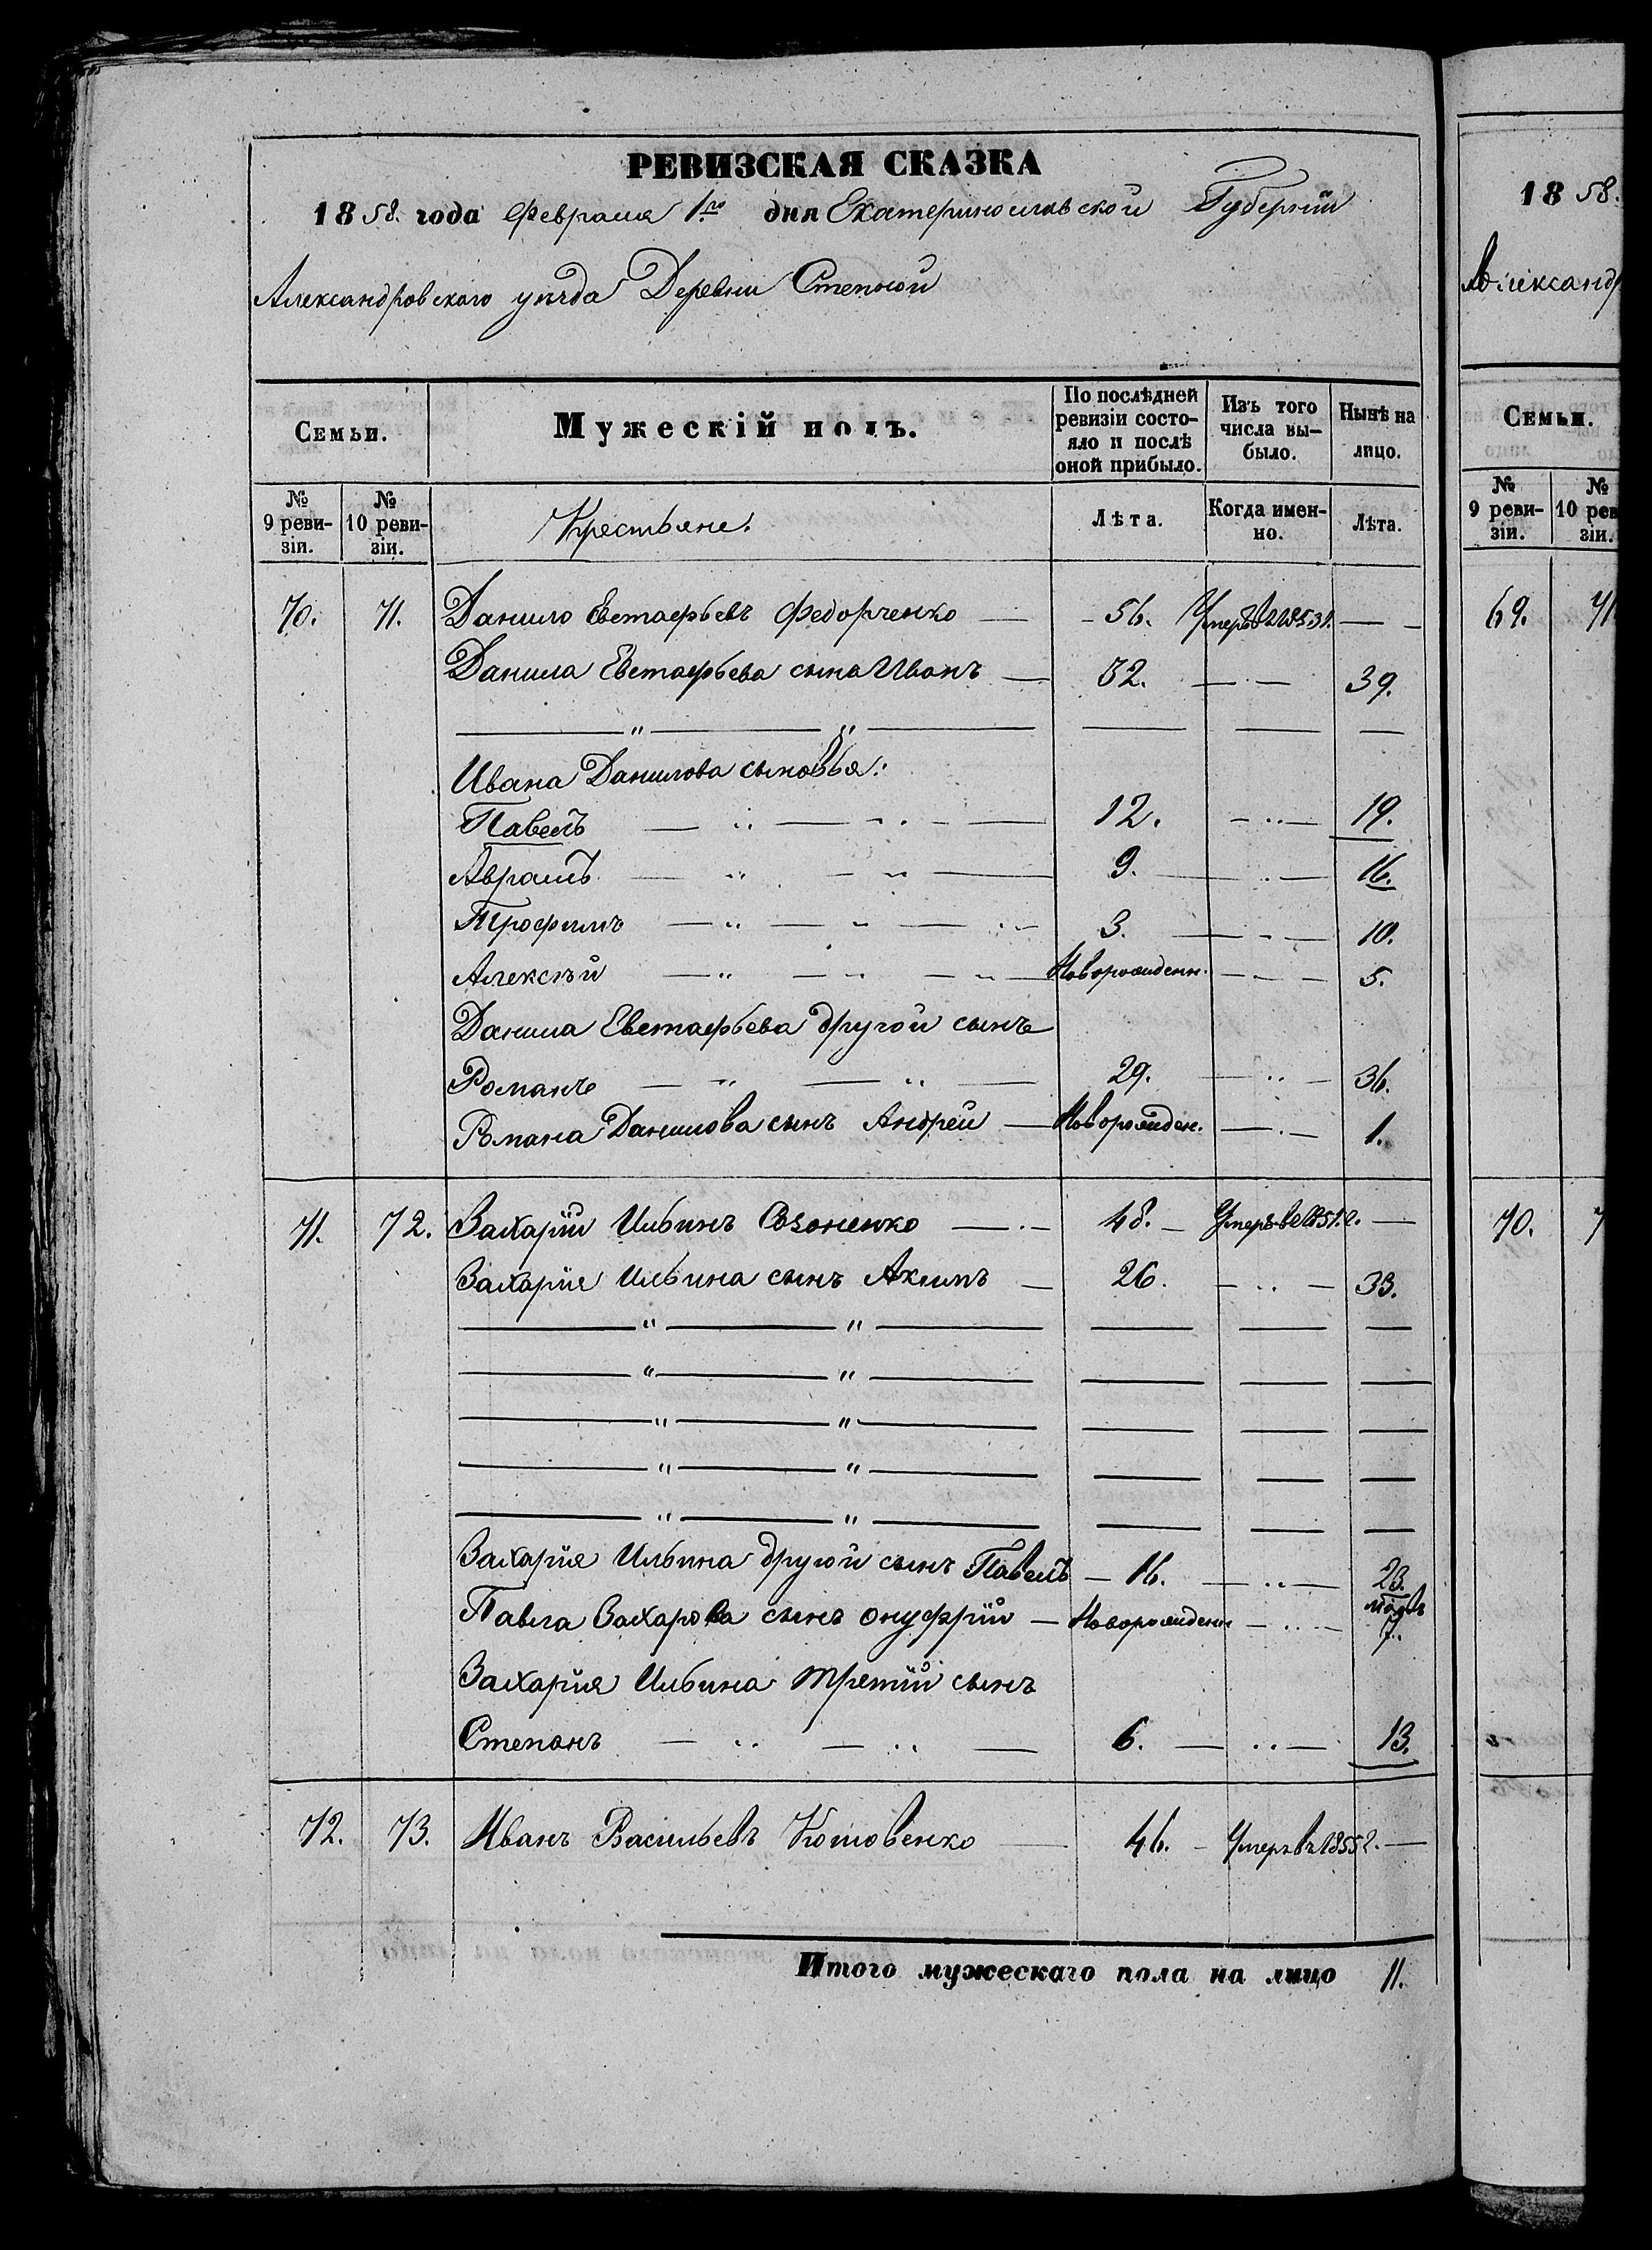 РЕВИЗСКАЯ СКАЗКА
1858. года Февраля 1го дня Екатеринославской Губерніи
Александровского уѣзда Деревни Степной
Семьи. Мужескій полъ. По послѣдней ревизіи состояло и послѣ оной прибыло. Изъ того числа выбыло. Нынѣ на лицо.
№ 9 ревизіи. № 10 ревизіи. Крестьяне. Лѣта. Когда именно. Лѣта.
70. 71. Данило Евстафьевъ Федорченко — 56. Умеръ —
Данила Евстафьева сынъ Иванъ — 32. — 39.
— " — " — — — —
Ивана Данилова сыновья:
Павелъ — 12. — 19.
Аврамъ — 9. — 16.
Трофимъ — 3. — 10.
Алексѣй — Новорожденн. — 5.
Данила Евстафьева другой сынъ
Романъ — 29. — 36.
Романа Данилова сынъ Андрей — Новорожден. — 1.
71. 72. Захарій Ильинъ Созоненко — 48. — Умеръ въ 1851 г. —
Захарія Ильина сынъ Акимъ — 26. — 33.
— " — " — — — —
— " — " — — — —
— " — " — — — —
— " — " — — — —
— " — " — — — —
Захарія Ильина другой сынъ Павелъ — 16. — 23.
Павла Захарова сынъ Онуфрій — Новорожденн — 7.
Захарія Ильина третій сынъ
Степанъ — 6. — 13.
72. 73. Иванъ Васильевъ Котовенко — 46. — Умеръ въ 1855 г. —
Итого мужескаго пола на лицо 11.
1858.
Александр
Семьи.
№ 9 ревизіи. № 10 рев зіи.
69. 71
70. 7